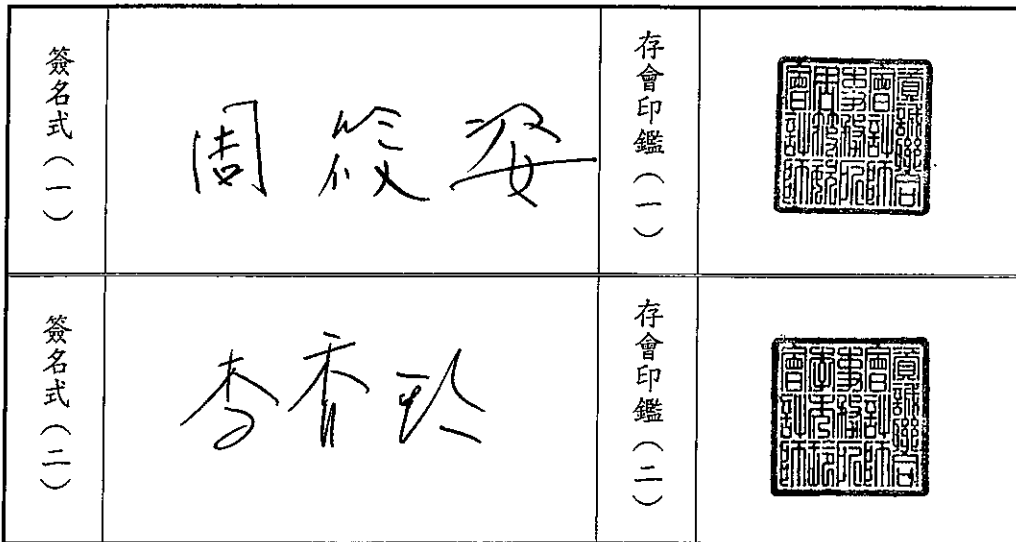 簽名式(一)
周筱姿
存會印鑑(一)
資誠聯合
會計師
事務所
周筱姿
會計師
簽名式(二)
李秀玲
存會印鑑(二)
資誠聯合
會計師
事務所
李秀玲
會計師